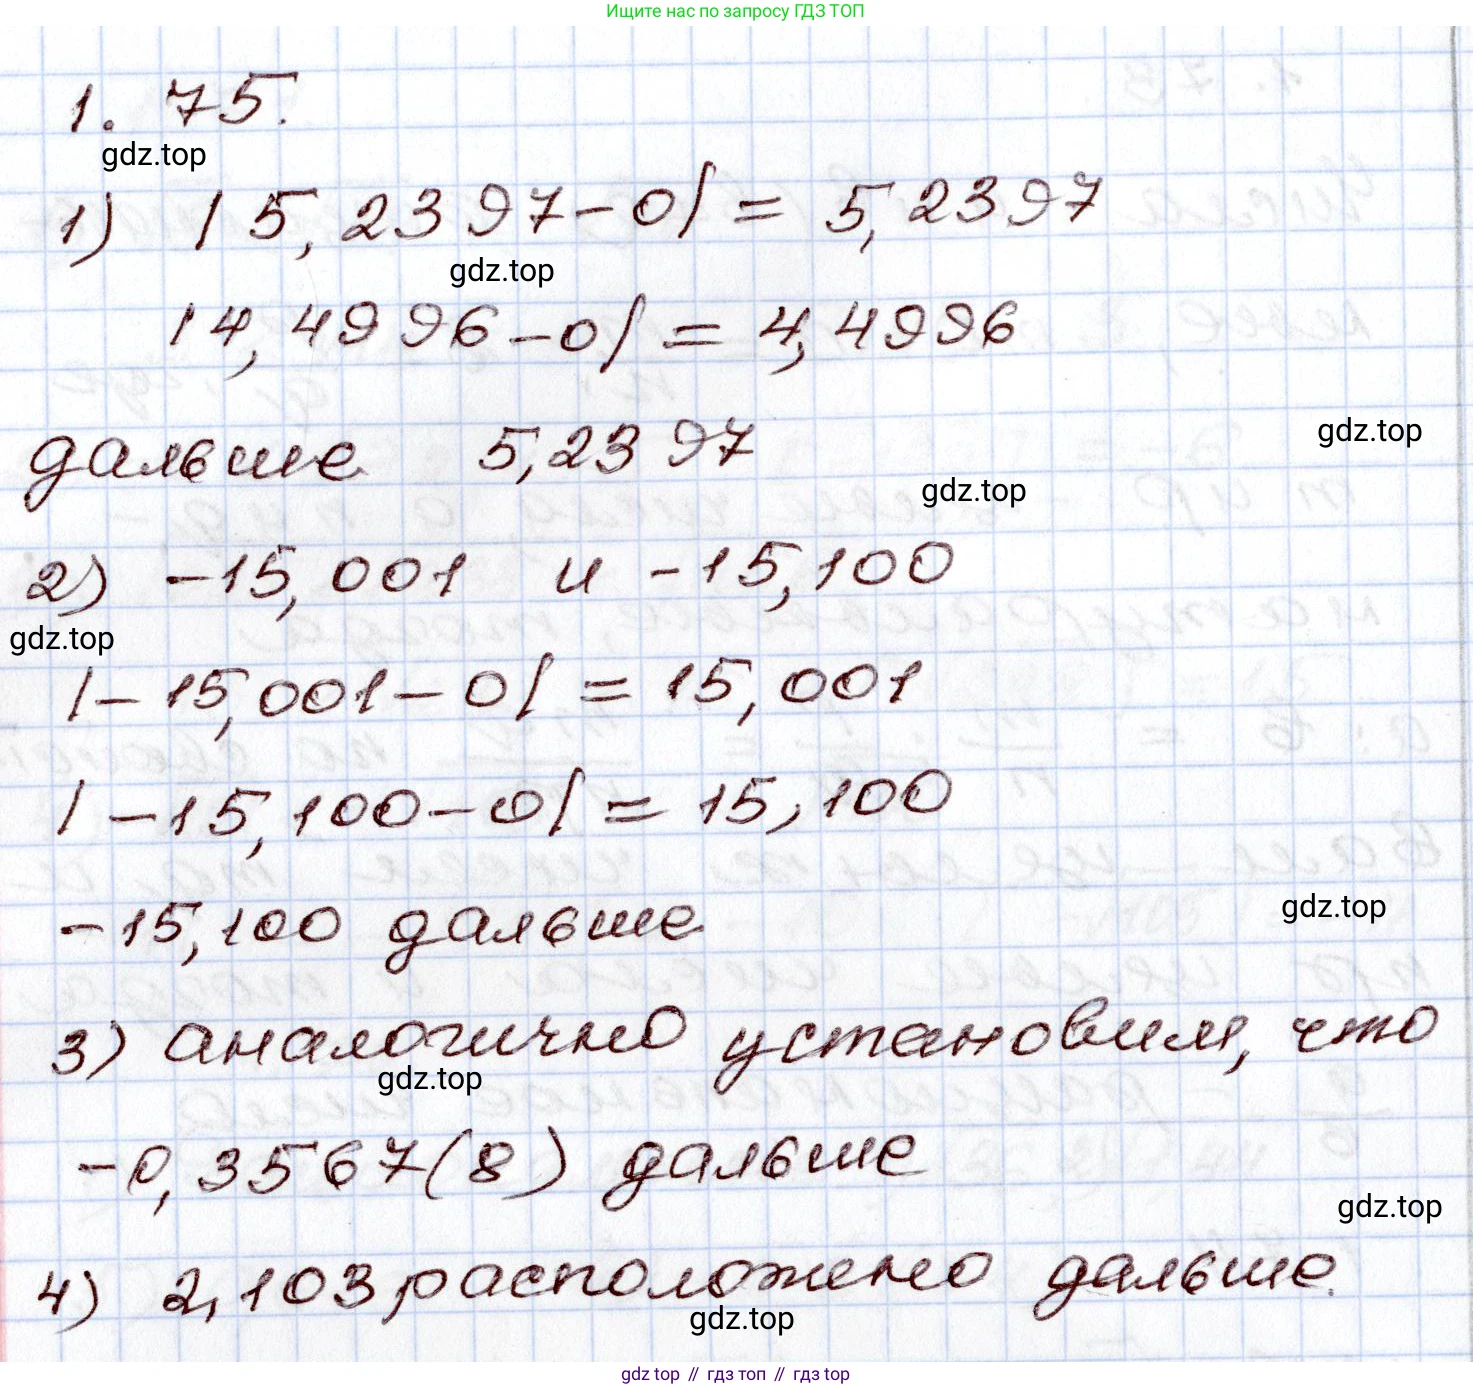 Ищите нас по запросу ГДЗ ТОП
1. 75.
gdz.top
1) |5,2397-0| = 5,2397
gdz.top
gdz.top
|4,4996-0| = 4,4996
дальше 5,2397
gdz.top
gdz.top
2) -15,001 и -15,100
gdz.top
|-15,001-0| = 15,001
|-15,100-0| = 15,100
-15,100 дальше
gdz.top
3) аналогично установим, что
gdz.top
-0,3567(8) дальше
gdz.top
4) 2,103 расположено дальше.
gdz.top
gdz top // гдз топ // гдз top